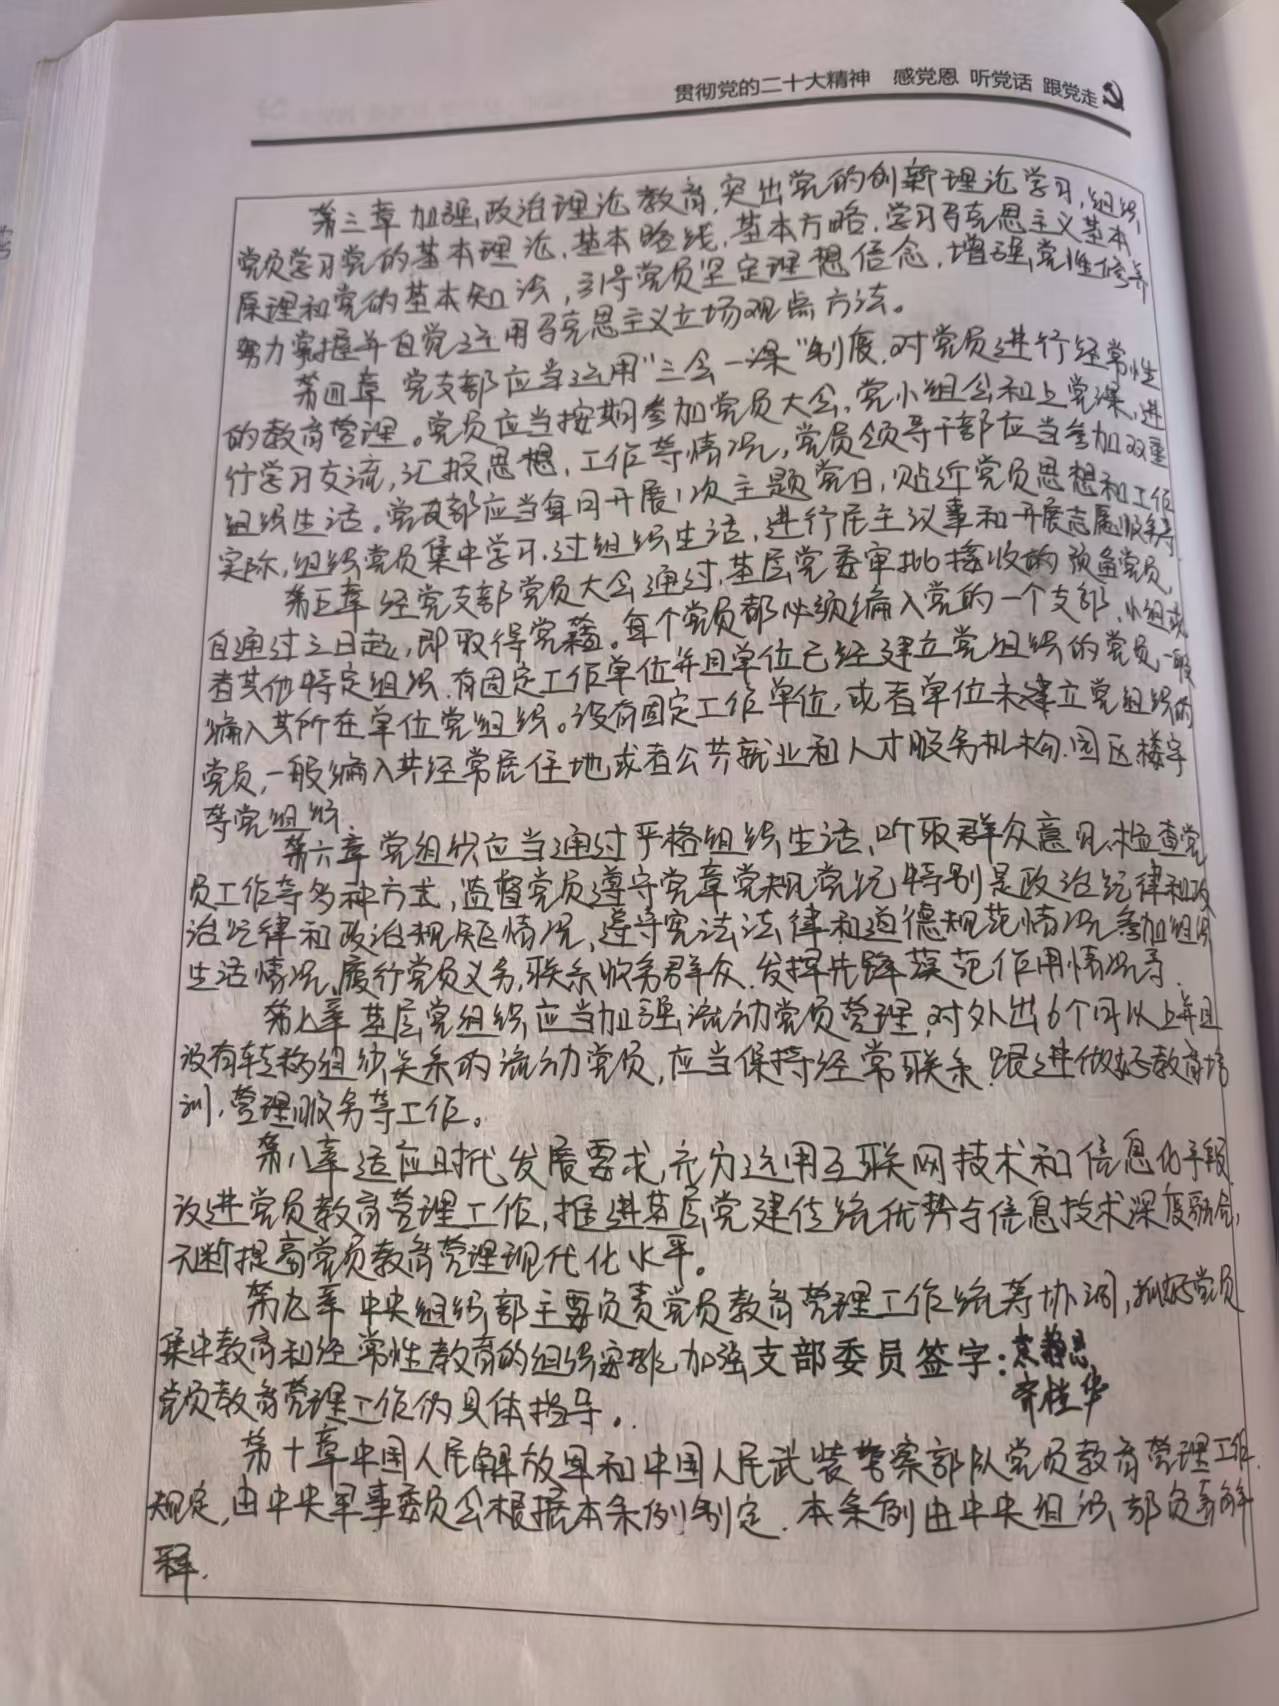 贯彻党的二十大精神 感党恩 听党话 跟党走
第三章 加强政治理论教育,突出党的创新理论学习,组织
党员学习党的基本理论,基本路线,基本方略,学习马克思主义基本
原理和党的基本知识,引导党员坚定理想信念,增强党性修养
努力掌握并自觉运用马克思主义立场观点方法。
第四章 党支部应当运用“三会一课”制度,对党员进行经常性
的教育管理。党员应当按期参加党员大会,党小组会和上党课,进
行学习交流,汇报思想,工作等情况,党员领导干部应当参加双重
组织生活。党支部应当每月开展1次主题党日,贴近党员思想和工作
实际,组织党员集中学习,过组织生活,进行民主议事和开展志愿服务等.
第五章 经党支部党员大会通过,基层党委审批接收的预备党员,
自通过之日起,即取得党籍。每个党员都必须编入党的一个支部,小组或
者其他特定组织.有固定工作单位并且单位已经建立党组织的党员,一般
编入其所在单位党组织。没有固定工作单位,或者单位未建立党组织的
党员,一般编入其经常居住地或者公共就业和人才服务机构.园区楼宇
等党组织.
第六章 党组织应当通过严格组织生活、听取群众意见、检查党
员工作等多种方式,监督党员遵守党章党规党纪特别是政治纪律和政
治纪律和政治规矩情况,遵守宪法法律和道德规范情况,参加组织
生活情况,履行党员义务,联系服务群众.发挥先锋模范作用情况等.
第七章 基层党组织应当加强流动党员管理,对外出6个月以上并且
没有转移组织关系的流动党员,应当保持经常联系.跟进做好教育培
训,管理服务等工作。
第八章 适应时代发展要求,充分运用互联网技术和信息化手段,
改进党员教育管理工作,推进基层党建传统优势与信息技术深度融合,
不断提高党员教育管理现代化水平。
第九章 中央组织部主要负责党员教育管理工作统筹协调,抓好党员
集中教育和经常性教育的组织安排,加强支部委员签字:
党员教育管理工作的具体指导。 齐桂华
第十章中国人民解放军和中国人民武装警察部队党员教育管理工作
规定,由中央军事委员会根据本条例制定.本条例由中央组织部负责解
释.